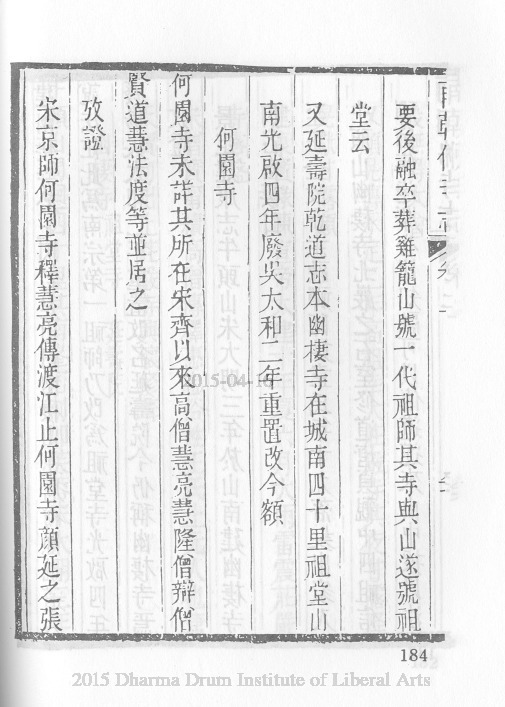 南朝佛寺志
要後融卒葬雞籠山號一代祖師其寺與山遂號祖
堂云
又延壽院乾道志本幽棲寺在城南四十里祖堂山
南光啟四年廢吳太和二年重置改今額
何園寺
何園寺未詳其所在宋齊以來高僧慧亮慧隆僧辯僧
賢道慧法度等並居之
攷證
宋京師何園寺釋慧亮傳渡江止何園寺顏延之張
184
2015-04-16
2015 Dharma Drum Institute of Liberal Arts